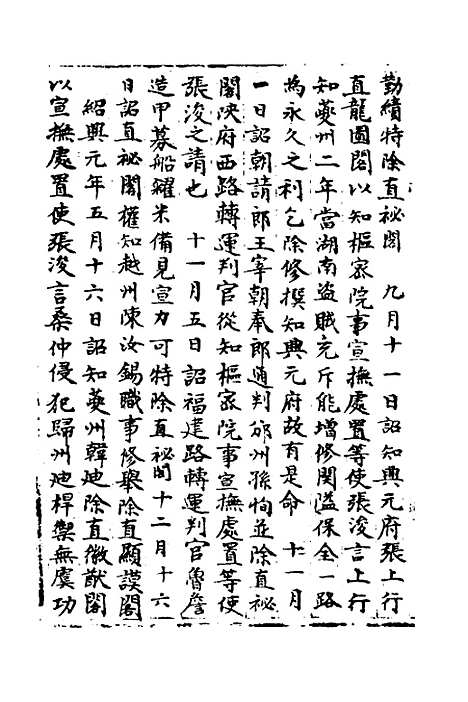 勤績特除直祕閣　九月十一日詔知興元府張上行
直龍圖閣以知樞密院事宣撫處置等使張浚言上行
知夔州二年當湖南盜賊充斥能增修関隘保全一路
為永久之利乞除修撰知興元府故有是命　十一月
一日詔朝請郎王宰朝奉郎通判邠州孫恂並除直祕
閣陝府西路轉運判官從知樞密院事宣撫處置等使
張浚之請也　十一月五日詔福建路轉運判官魯詹
造甲募船糴米備見宣力可特除直祕閣十二月十六
日詔直祕閣權知越州陳汝錫職事修舉除直顯謨閣
紹興元年五月十六日詔知夔州韓迪除直徽猷閣
以宣撫處置使張浚言桑仲侵犯歸州迪捍禦無虞功